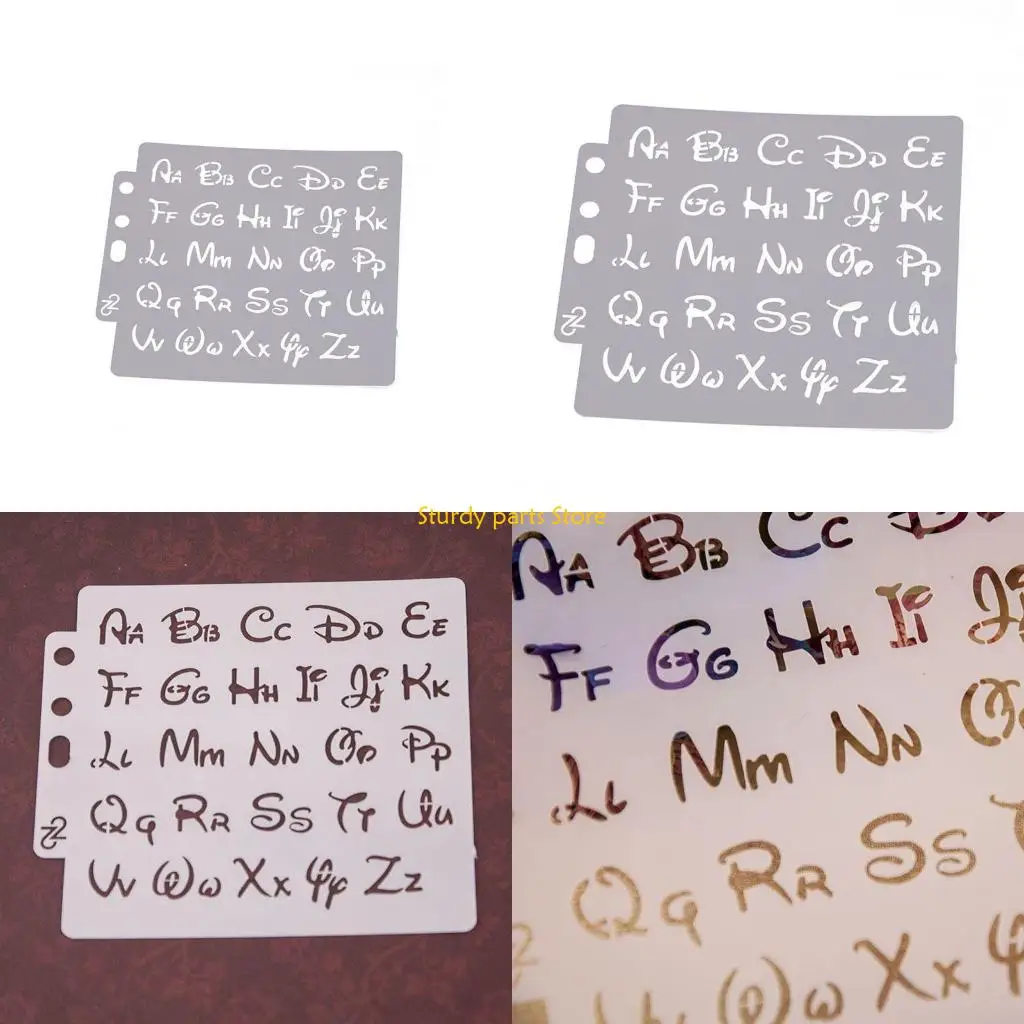 Aa Bb Cc Dd Ee
Ff Gg Hh Ii Jj Kk
Ll Mm Nn Oo Pp
Qq Rr Ss Tt Uu
Vv Ww Xx Yy Zz
22
Aa Bb Cc Dd Ee
Ff Gg Hh Ii Jj Kk
Ll Mm Nn Oo Pp
Qq Rr Ss Tt Uu
Vv Ww Xx Yy Zz
22
Sturdy parts Store
Aa Bb Cc Dd Ee
Ff Gg Hh Ii Jj Kk
Ll Mm Nn Oo Pp
Qq Rr Ss Tt Uu
Vv Ww Xx Yy Zz
22
Aa Bb Cc D
Ff Gg Hh Ii Jj
Ll Mm Nn O
Qq Rr Ss
Vv Ww Xx